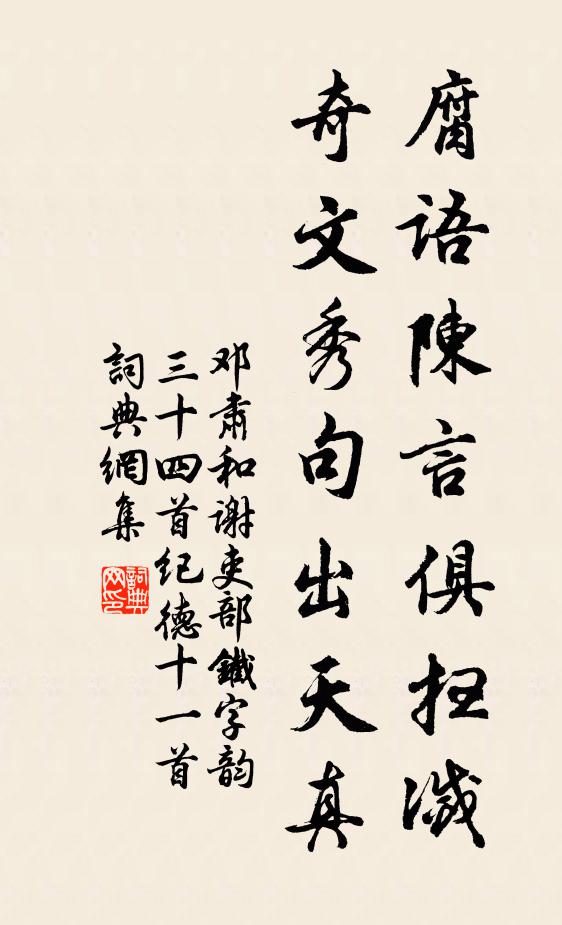 腐語陳言俱扫滅
奇文秀句出天真
邓肅和谢吏部鐵字韵
三十四首纪德十一首
詞典網集
詞典
网印